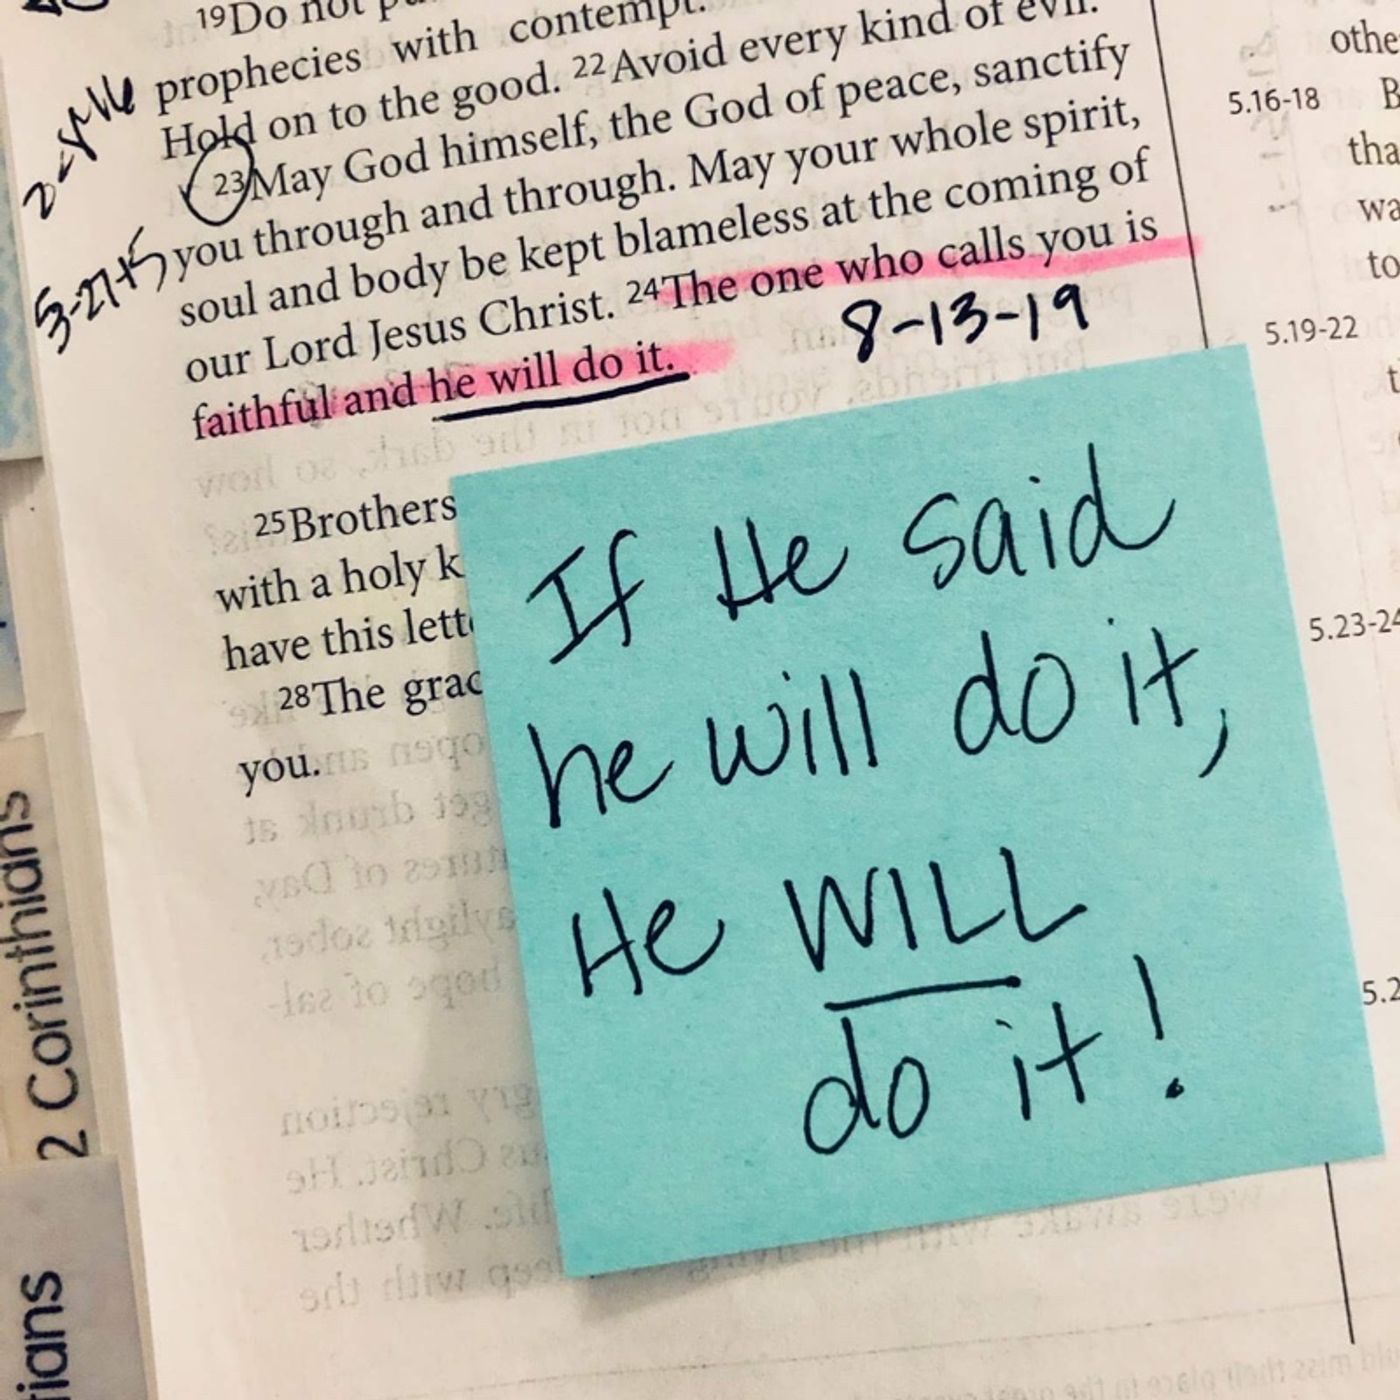 19Do not
prophecies with contempt.
Hold on to the good. 22Avoid every kind of evil.
23May God himself, the God of peace, sanctify
you through and through. May your whole spirit,
soul and body be kept blameless at the coming of
our Lord Jesus Christ. 24The one who calls you is
faithful and he will do it.
8-13-19
25Brothers
with a holy k
have this lett
28The grac
you.
If He said
he will do it,
He WILL
do it!
5.16-18
5.19-22
5.23-24
5.2
othe
B
tha
wa
to
t
2 Corinthians
tians